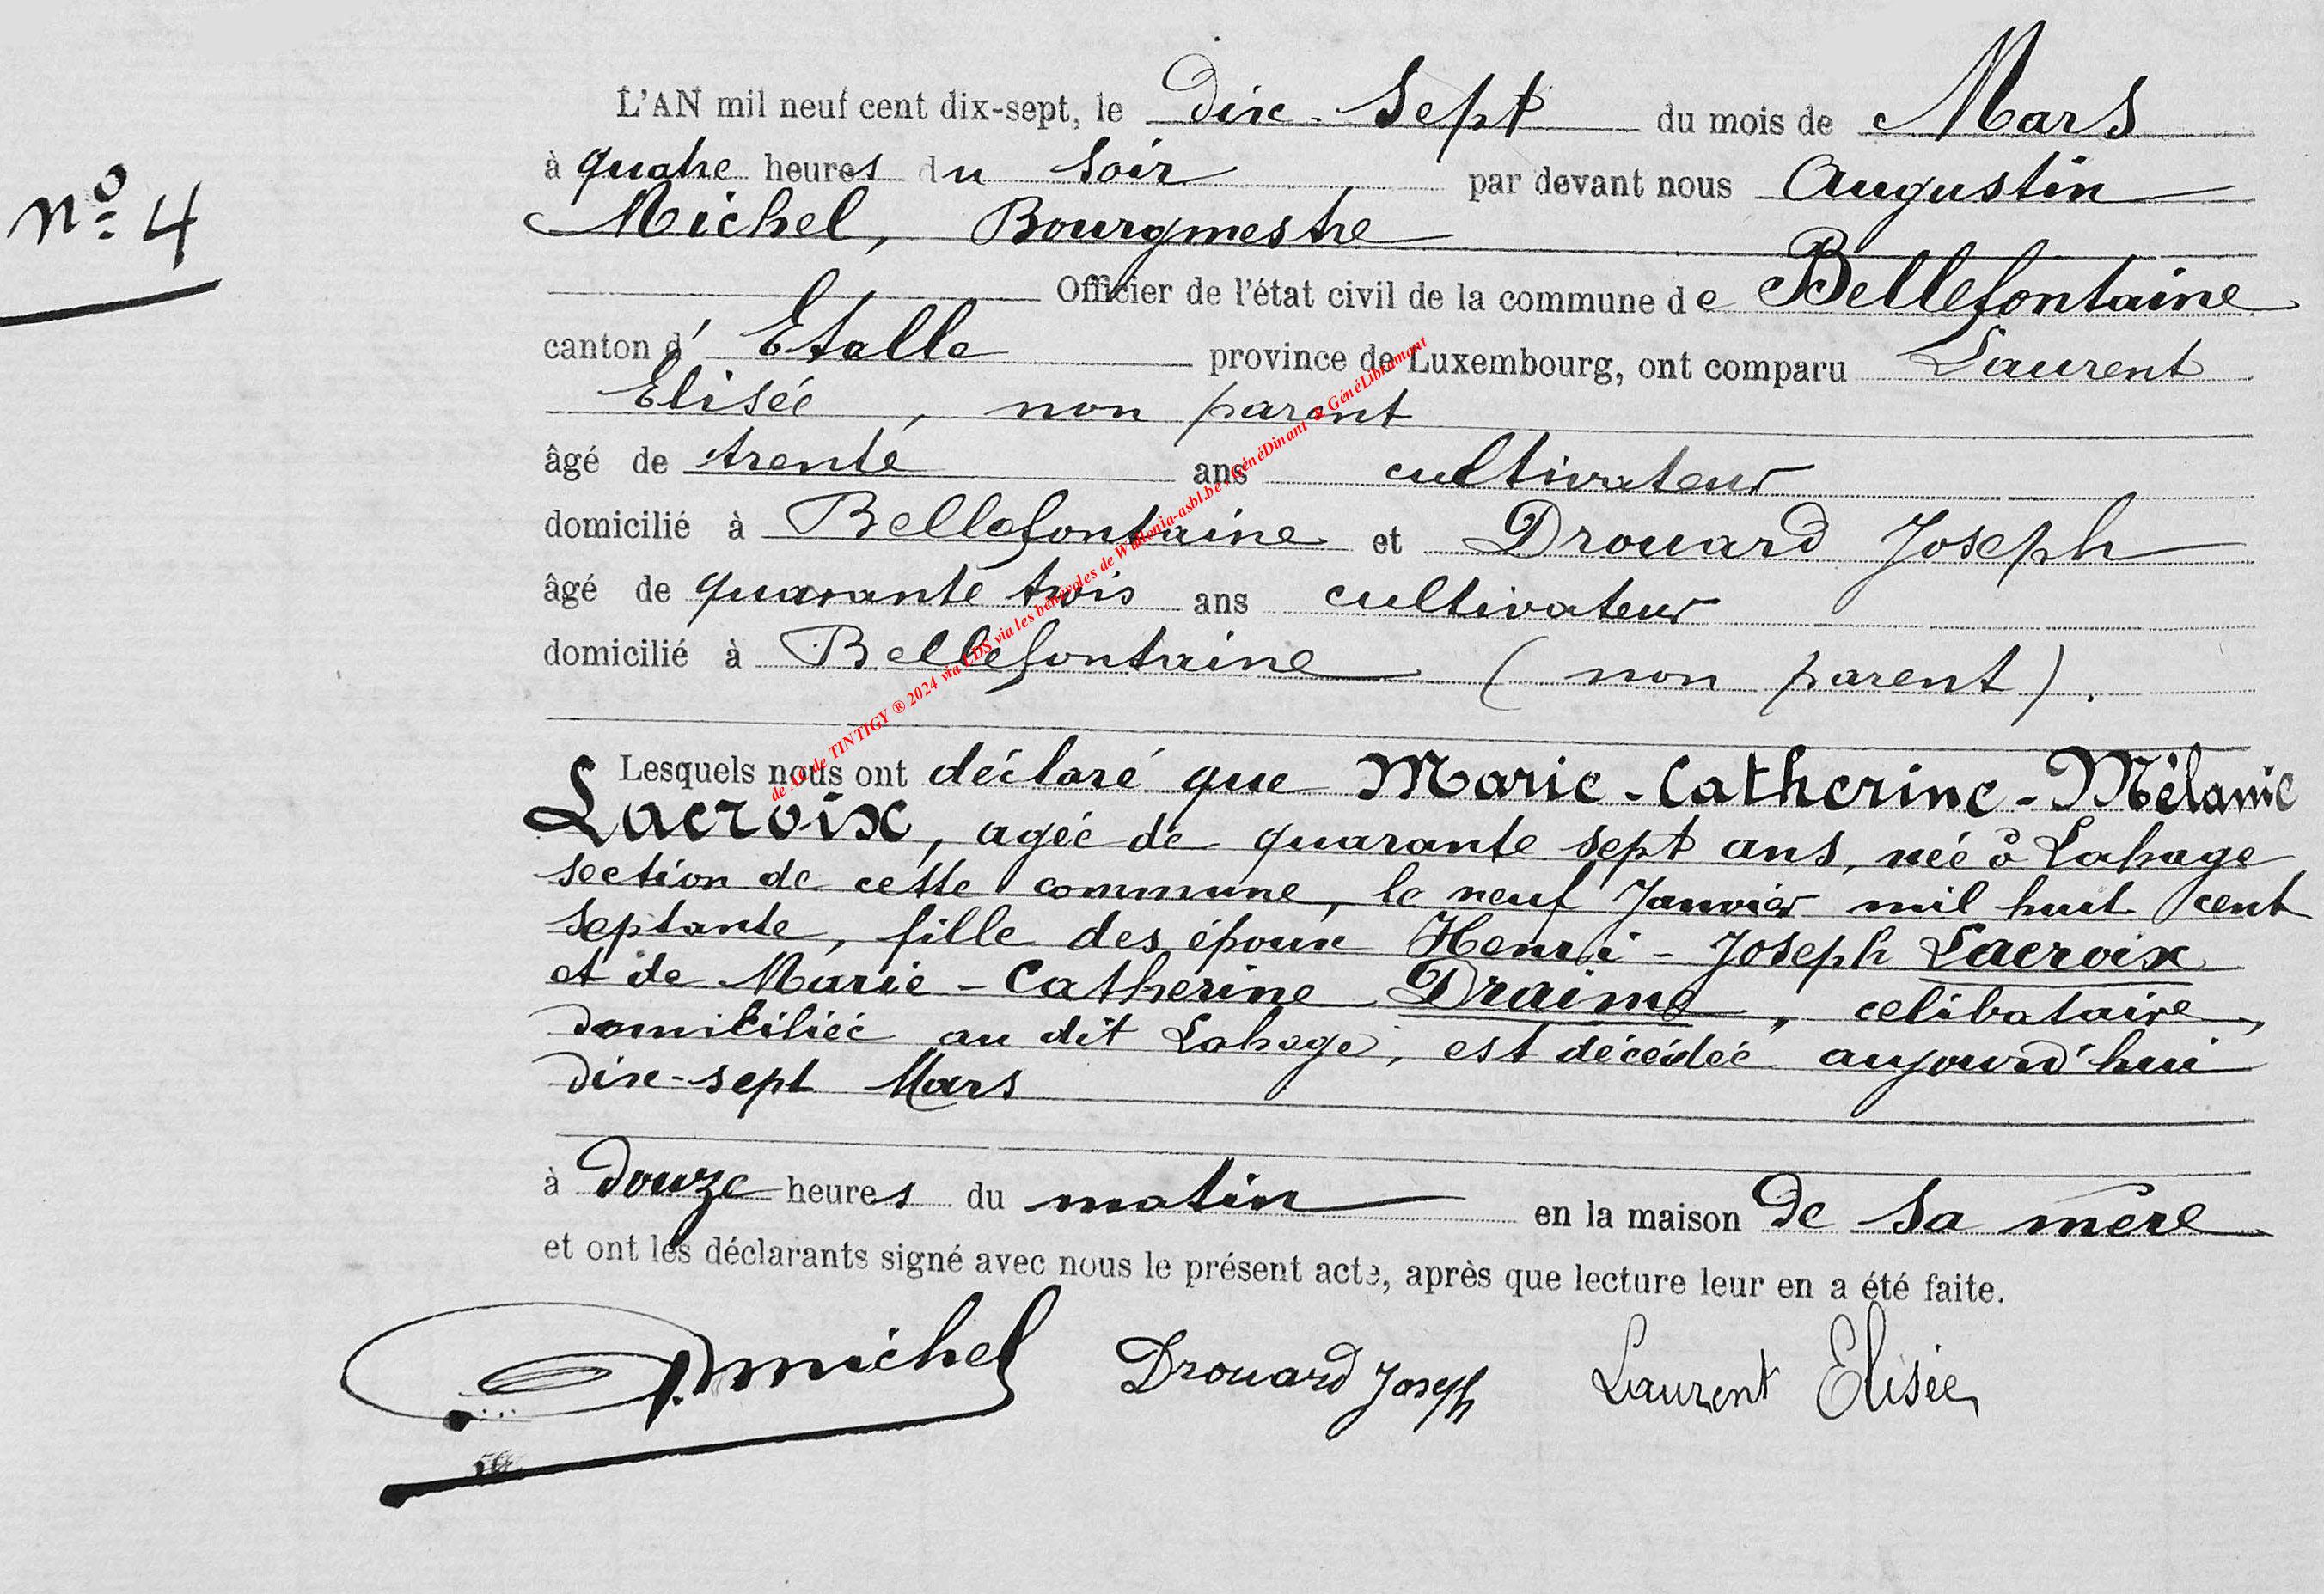 L'AN mil neuf cent dix-sept, le dix-sept du mois de Mars
à quatre heures du soir par devant nous Augustin
Michel, Bourgmestre
Officier de l'état civil de la commune de Bellefontaine
canton d' Etalle province de Luxembourg, ont comparu Laurent
Elisée, non parent
âgé de trente ans cultivateur
domicilié à Bellefontaine et Drouard Joseph
âgé de quarante trois ans cultivateur
domicilié à Bellefontaine (non parent).
Lesquels nous ont déclaré que Marie-Catherine-Mélanie
Lacroix, agée de quarante sept ans, née à Lahage
section de cette commune, le neuf Janvier mil huit cent
septante, fille des époux Henri-Joseph Lacroix
et de Marie-Catherine Draime, celibataire,
domiciliée au dit Lahage, est décédée aujourd'hui
dix-sept Mars
à douze heures du matin en la maison de sa mère
et ont les déclarants signé avec nous le présent acte, après que lecture leur en a été faite.
Amichel Drouard Joseph Laurent Elisée
n° 4
de AC de TINTIGY ® 2024 via CDS via les bénévoles de Wallonia-asbl.be : GénéDinant & GénéLibramont